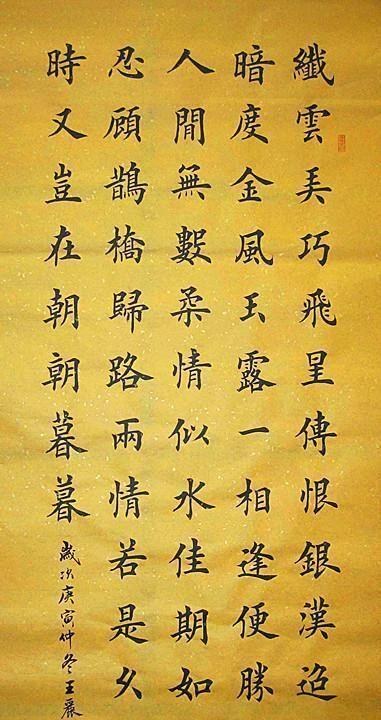 纖雲弄巧飛星傳恨銀漢迢
暗度金風玉露一相逢便勝
人間無數柔情似水佳期如
忍顧鵲橋歸路兩情若是久
時又豈在朝朝暮暮
歲次庚寅仲冬王